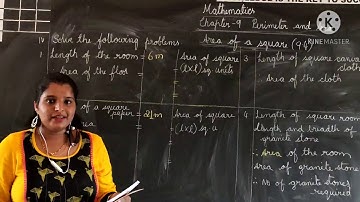 Mathematics
Chapter-9 Perimeter and
Area of a square
IV Solve the following problems
Length of the room = 6m
Area of the floor
Area of square
(l×l) sq. units
of a square paper = 21m
Area of square
(l×l) sq. u
3 Length of square canva
cloth
Area of the cloth
4 Length of square room
Length and breadth of
granite stone
∴ Area of the room
Area of granite stone
∴ No of granite stones
required
KINEMASTER